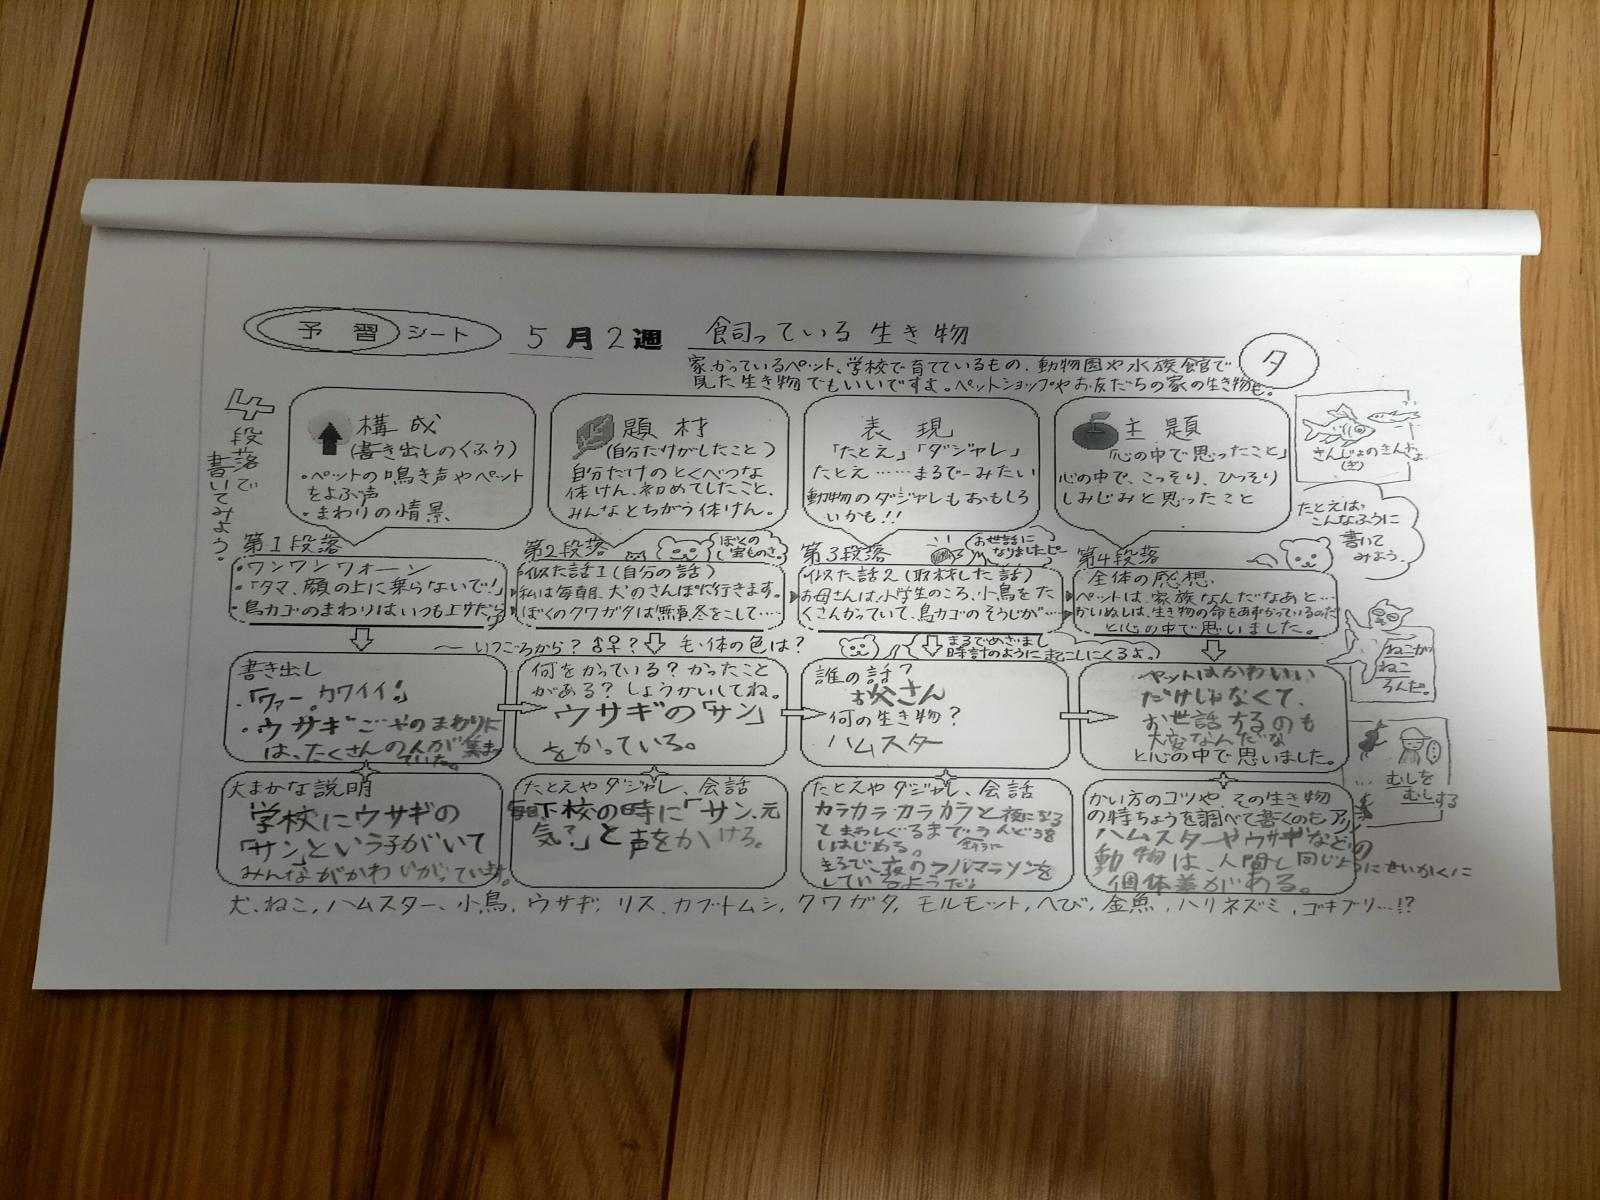 予習シート
5月2週
飼っている生き物
タ
家でかっているペット、学校で育てているもの、動物園や水族館で
見た生き物でもいいですよ。ペットショップやお友だちの家の生き物も。
4段落で
書いてみよう。
構成
(書き出しのくふう)
・ペットの鳴き声やペット
をよぶ声
・まわりの情景
題材
(自分だけがしたこと)
自分だけのとくべつな
体けん、初めてしたこと、
みんなとちがう体けん。
表現
「たとえ」「ダジャレ」
たとえ……まるで〜みたい
動物のダジャレもおもしろ
いかも!!
主題
「心の中で思ったこと」
心の中で、こっそり、ひっそり
しみじみと思ったこと
さんじょのきんぎょ
(ぎ)
たとえば、
こんなふうに
書いて
みよう。
第1段落
・ワンワンワォーン
・「タマ、顔の上に乗らないで!」
・鳥カゴのまわりはいつもエサだらけ
第2段落
ぼくの
し宝ものさ。
・似た話1(自分の話)
私は毎朝、犬のさんぽに行きます。
ぼくのクワガタは無事、冬をこして……
第3段落
お世話に
なりましたピー
似た話2(取材した話)
お母さんは、小学生のころ、小鳥をた
くさんかっていて、鳥カゴのそうじが……
第4段落
全体の感想
ペットは、家族なんだなあと…
かいぬしは、生き物の命をあずかっているのだ
と心の中で思いました。
〜いつごろから?♂♀?
毛・体の色は?
まるでめざまし
時計のように起こしにくるよ。
ねこが
ねこ
ろんだ。
書き出し
・「ワァー、カワイイ!」
・ウサギごやのまわりに
は、たくさんの人が集まっ
ていた。
何をかっている?かったこと
がある?しょうかいしてね。
ウサギの「サン」
をかっている。
誰の話?
お父さん
何の生き物?
ハムスター
ペットはかわいい
だけじゃなくて、
お世話するのも
大変なんだな
と心の中で思いました。
むしを
むしする
大まかな説明
学校にウサギの
「サン」という子がいて
みんながかわいがっています。
たとえやダジャレ、会話
毎日下校の時に「サン、元
気?」と声をかける。
たとえやダジャレ、会話
カラカラカラカラと夜になる
とまわしぐるまでうんどうを
しはじめる。
まるで、夜のフルマラソンを
しているようだ。
かい方のコツや、その生き物
の特ちょうを調べて書くのもアリ
ハムスターやウサギなどの
動物は、人間と同じようにせいかくに
個体差がある。
犬、ねこ、ハムスター、小鳥、ウサギ、リス、カブトムシ、クワガタ、モルモット、へび、金魚、ハリネズミ、ゴキブリ…!?